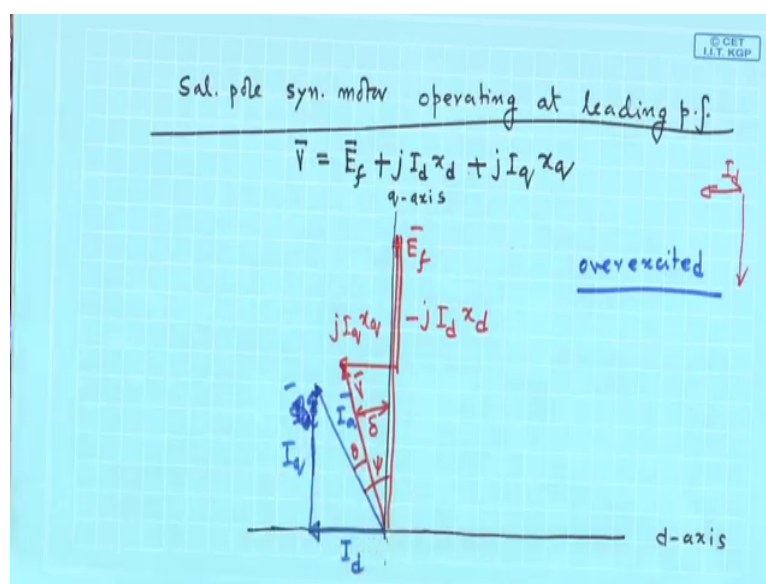 © CET
I.I.T. KGP
Sal. pole syn. motor operating at leading p.f.
V̄ = Ē_f + j I_d x_d + j I_q x_q
q-axis
I_d
Ē_f
overexcited
j I_q x_q
-j I_d x_d
V̄
Ī_a
δ
I_q
θ
ψ
I_d
d-axis